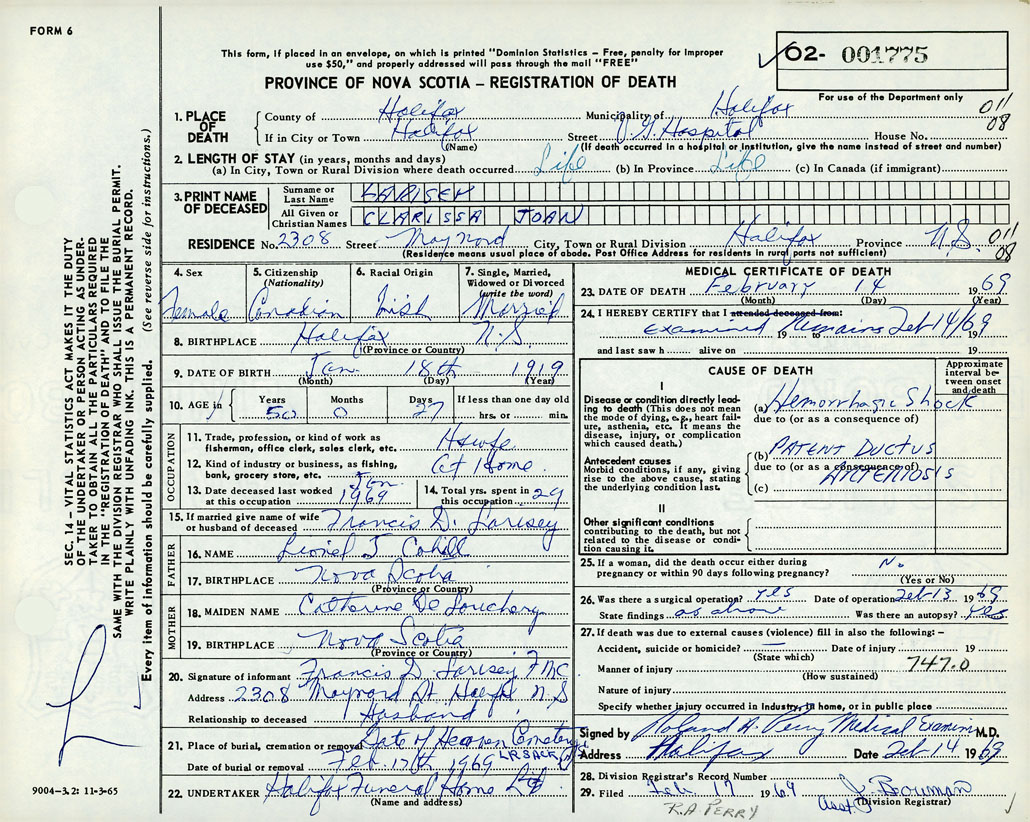 FORM 6
This form, if placed in an envelope, on which is printed "Dominion Statistics – Free, penalty for Improper
use $50," and properly addressed will pass through the mail "FREE"
PROVINCE OF NOVA SCOTIA – REGISTRATION OF DEATH
✓ 02- 001775
For use of the Department only
011
08
1. PLACE OF DEATH
County of Halifax Municipality of Halifax
If in City or Town Halifax Street V.G. Hospital House No.
(Name) (If death occurred in a hospital or institution, give the name instead of street and number)
2. LENGTH OF STAY (in years, months and days)
(a) In City, Town or Rural Division where death occurred Life (b) In Province Life (c) In Canada (if immigrant)
3. PRINT NAME OF DECEASED
Surname or Last Name LARISEY
All Given or Christian Names CLARISSA JOAN
RESIDENCE No. 2308 Street Maynard City, Town or Rural Division Halifax Province N.S. 011
(Residence means usual place of abode. Post Office Address for residents in rural parts not sufficient) 08
4. Sex Female
5. Citizenship (Nationality) Canadian
6. Racial Origin Irish
7. Single, Married, Widowed or Divorced (write the word) Married
8. BIRTHPLACE Halifax N.S.
(Province or Country)
9. DATE OF BIRTH Jan. 18th 1919
(Month) (Day) (Year)
10. AGE in Years 50 Months 0 Days 27 If less than one day old
hrs. or min.
OCCUPATION
11. Trade, profession, or kind of work as
fisherman, office clerk, sales clerk, etc. Hswfe
12. Kind of industry or business, as fishing,
bank, grocery store, etc. At Home
13. Date deceased last worked at this occupation Jan 1969
14. Total yrs. spent in this occupation 29
15. If married give name of wife
or husband of deceased Francis D. Larisey
FATHER
16. NAME Lionel J Cahill
17. BIRTHPLACE Nova Scotia
(Province or Country)
MOTHER
18. MAIDEN NAME Catherine De
19. BIRTHPLACE Nova Scotia
(Province or Country)
20. Signature of informant Francis D. Larisey
Address 2308 Maynard St Halifax N S
Relationship to deceased Husband
21. Place of burial, cremation or removal Gate of Heaven Cemetery
Date of burial or removal Feb 17th 1969 LR SACK
22. UNDERTAKER Halifax Funeral Home Ltd
(Name and address)
MEDICAL CERTIFICATE OF DEATH
23. DATE OF DEATH February 14 1969
(Month) (Day) (Year)
24. I HEREBY CERTIFY that I attended deceased from:
Examined Remains Feb 14/69
19 to 19
and last saw h alive on 19
CAUSE OF DEATH
Approximate interval between onset and death
I
Disease or condition directly leading to death (This does not mean the mode of dying, e.g., heart failure, asthenia, etc. It means the disease, injury, or complication which caused death.)
(a) Hemorrhagic Shock
due to (or as a consequence of)
Antecedent causes
Morbid conditions, if any, giving rise to the above cause, stating the underlying condition last.
(b) PATENT DUCTUS
due to (or as a consequence of)
ARTERIOSIS
(c)
II
Other significant conditions
contributing to the death, but not related to the disease or condition causing it.
25. If a woman, did the death occur either during
pregnancy or within 90 days following pregnancy? No
(Yes or No)
26. Was there a surgical operation? yes Date of operation Feb 13 1969
State findings as above Was there an autopsy? yes
27. If death was due to external causes (violence) fill in also the following: –
Accident, suicide or homicide? Date of injury 19
(State which)
Manner of injury 747.0
(How sustained)
Nature of injury
Specify whether injury occurred in industry, in home, or in public place
Signed by Roland A. Perry Medical Examiner M.D.
Address Halifax Date Feb 14 1969
28. Division Registrar's Record Number
29. Filed Feb 17 1969 Asst J. Bowman
(Division Registrar)
R.A PERRY
SEC. 14 – VITAL STATISTICS ACT MAKES IT THE DUTY
OF THE UNDERTAKER OR PERSON ACTING AS UNDER-
TAKER TO OBTAIN ALL THE PARTICULARS REQUIRED
IN THE "REGISTRATION OF DEATH" AND TO FILE THE
SAME WITH THE DIVISION REGISTRAR WHO SHALL ISSUE THE BURIAL PERMIT.
WRITE PLAINLY WITH UNFADING INK. THIS IS A PERMANENT RECORD.
Every item of information should be carefully supplied. (See reverse side for instructions.)
9004-3.2: 11-3-65